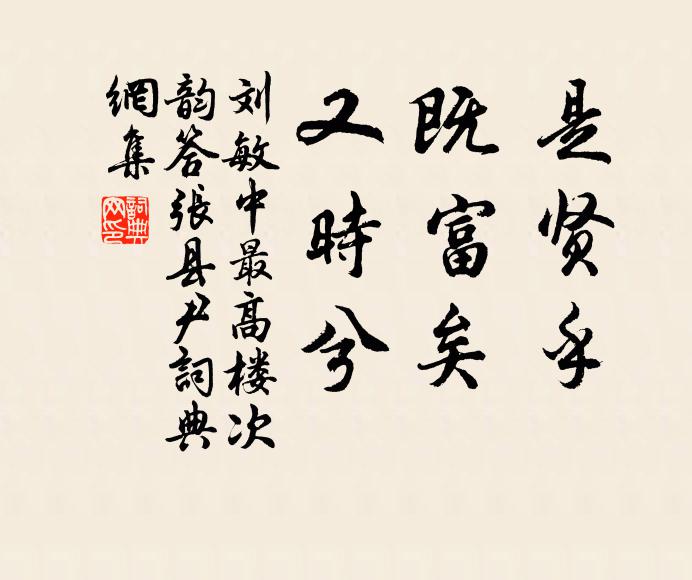 是贤乎
既富矣
又時兮
刘敏中最高楼次
韵答張县尹詞典
網集
詞典
网印